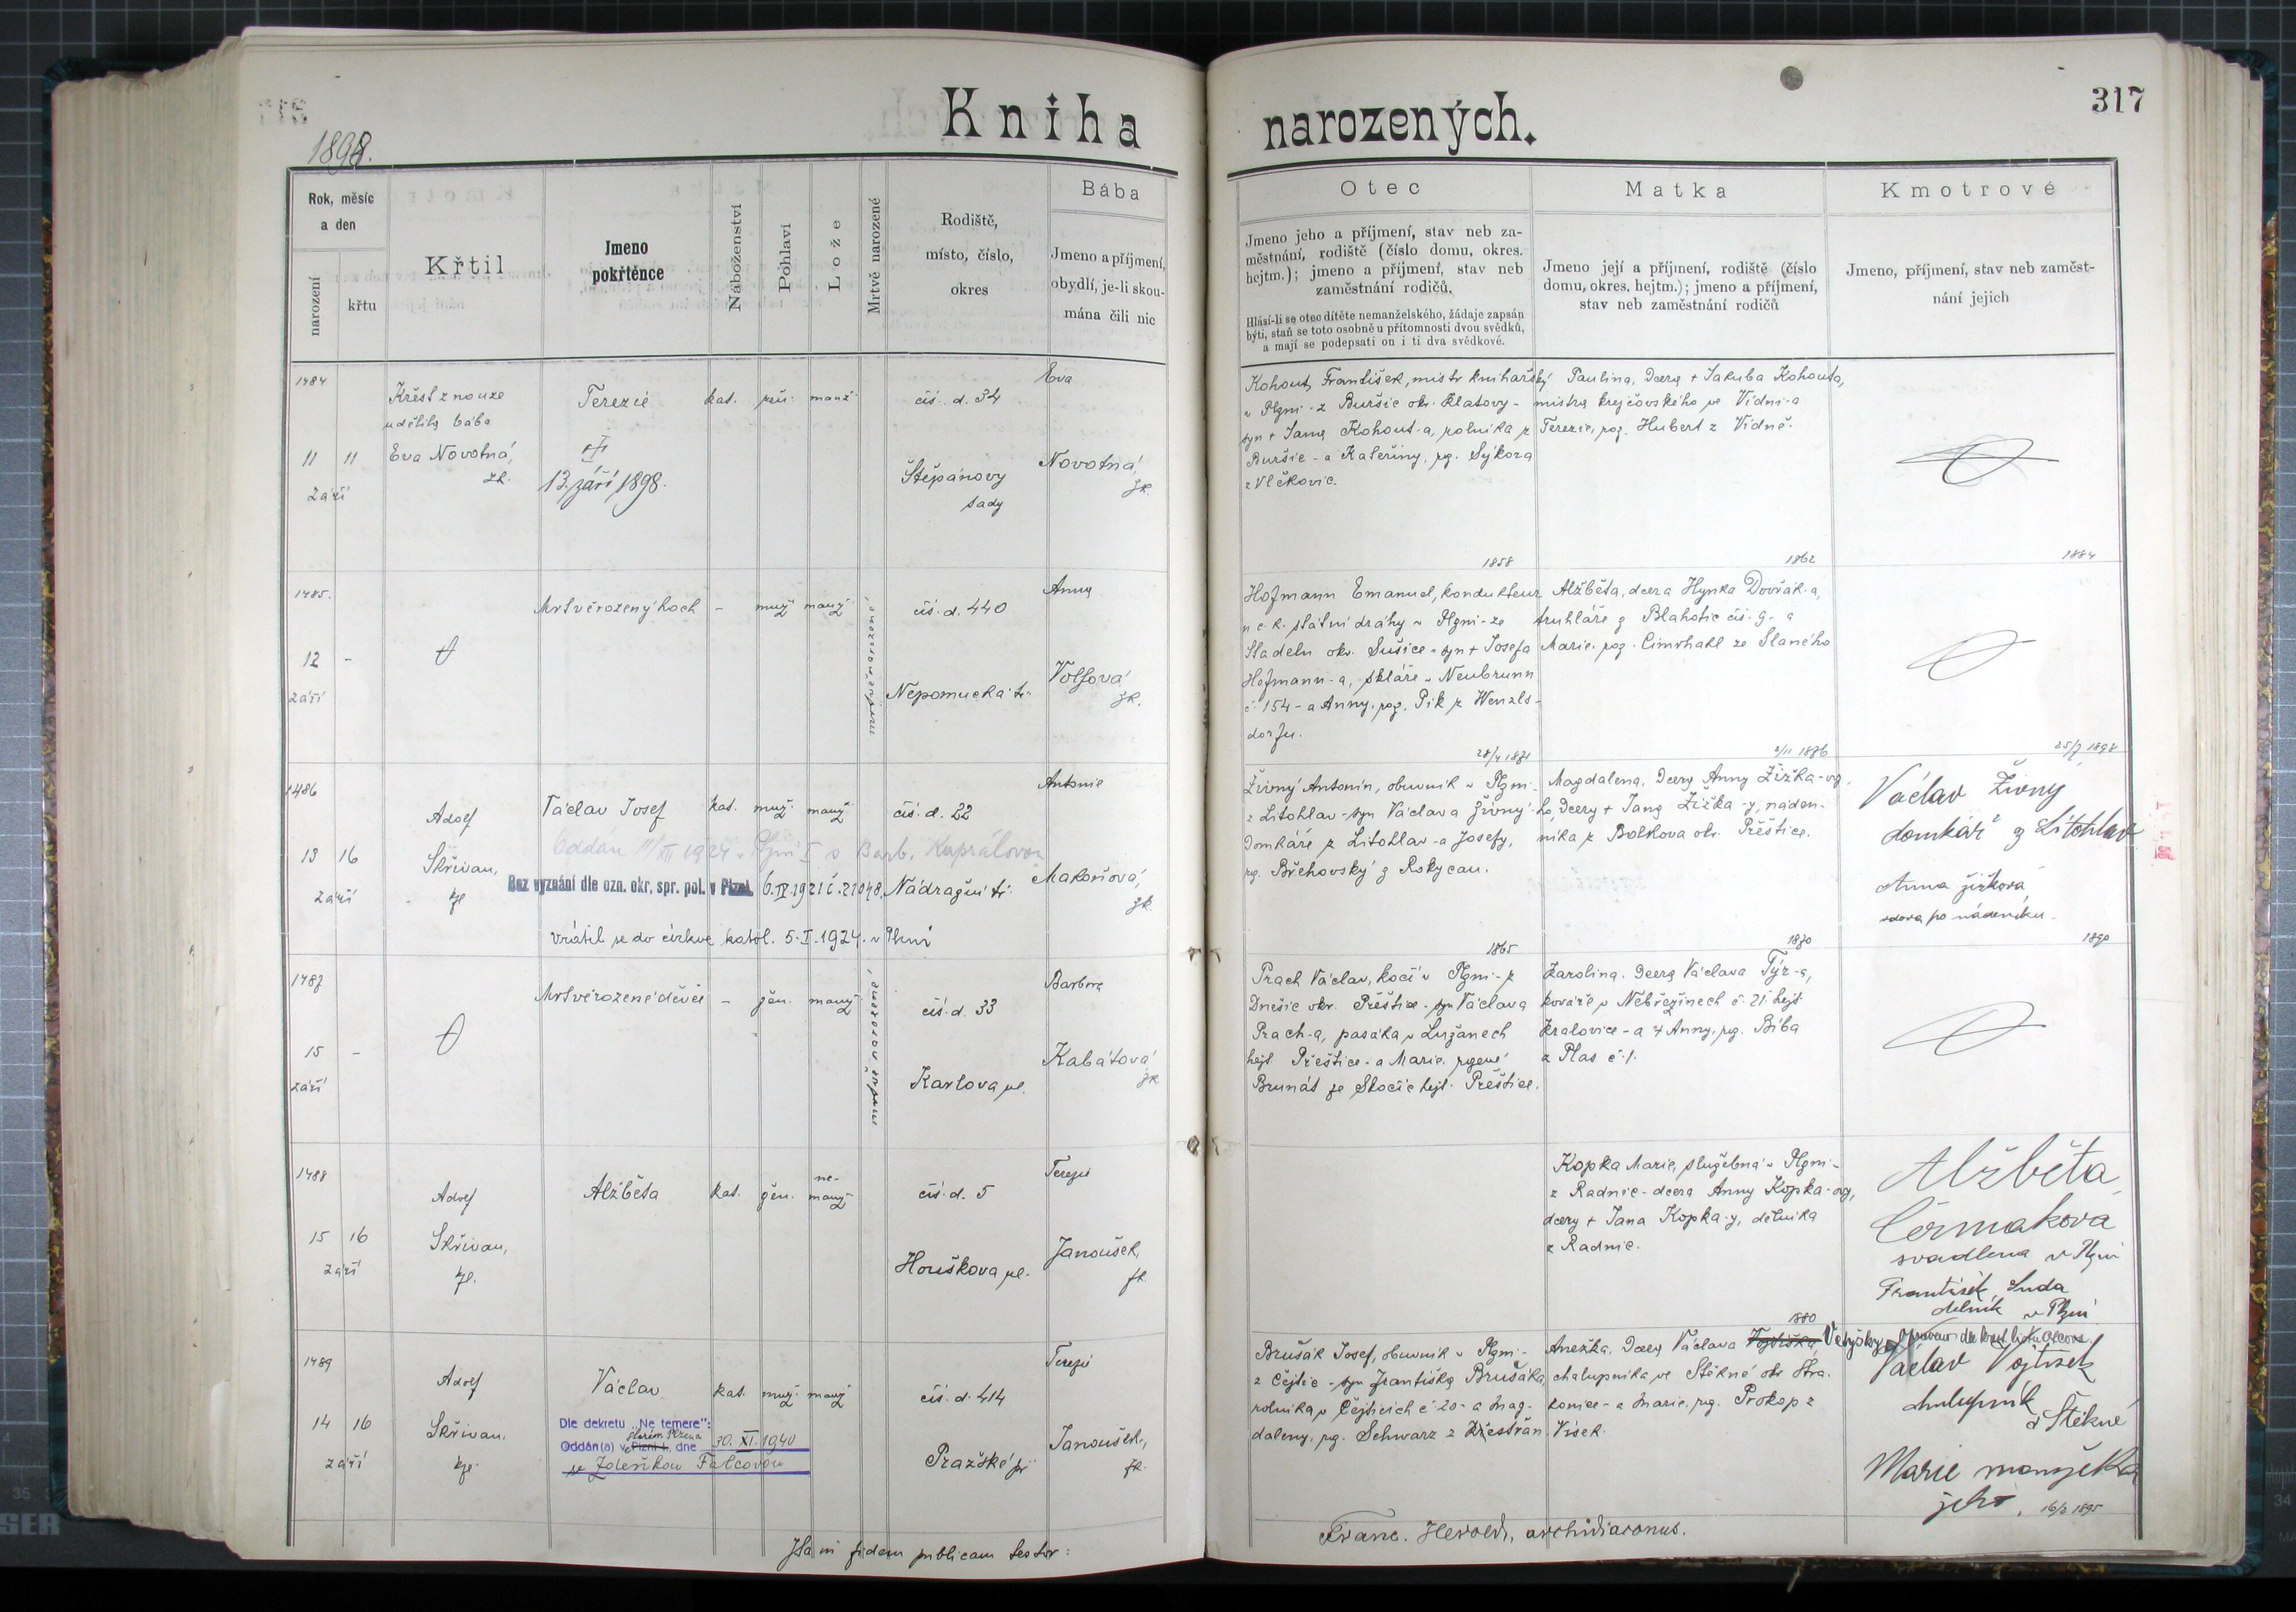 317
1898.
Kniha narozených.
Rok, měsíc
a den
narození
křtu
Křtil
Jmeno
pokřtěnce
Náboženství
Pohlaví
Lože
Mrtvě narozené
Rodiště,
místo, číslo,
okres
Bába
Jmeno a příjmení,
obydlí, je-li skou-
mána čili nic
Otec
Jmeno jeho a příjmení, stav neb za-
městnání, rodiště (číslo domu, okres.
hejtm.); jmeno a příjmení, stav neb
zaměstnání rodičů.
Hlásí-li se otec dítěte nemanželského, žádaje zapsán
býti, staň se toto osobně u přítomnosti dvou svědků,
a mají se podepsati on i ti dva svědkové.
Matka
Jmeno její a příjmení, rodiště (číslo
domu, okres. hejtm.); jmeno a příjmení,
stav neb zaměstnání rodičů
Kmotrové
Jmeno, příjmení, stav neb zaměst-
nání jejich
1484
11 11
září
Křest z nouze
udělila bába
Eva Novotná,
zk.
Terezie
13. září 1898.
kat.
manž.
čís. d. 34
Štěpánovy
sady
Eva
Novotná,
zk.
Kohout František, mistr knihařský
v Plzni - z Buršic okr. Klatovy -
syn + Jana Kohout-a, rolníka z
Buršic - a Kateřiny, roz. Sýkora
z Vlčkovic.
Paulina, dcera + Jakuba Kohouta,
mistra krejčovského ve Vídni - a
Terezie, roz. Hubert z Vídně.
1485.
12 -
září
Mrtvěrozený hoch
-
muž.
manž.
mrtvě narozené
čís. d. 440
Nepomucká tř.
Anna
Volfová,
zk.
1858
Hofmann Emanuel, kondukteur
u c. k. státní dráhy v Plzni - ze
Stadeln okr. Sušice - syn + Josefa
Hofmann-a, skláře v Neubrunn
č. 154 - a Anny, roz. Pik z Wenzls-
dorfu.
1862
Alžběta, dcera Hynka Dvořák-a,
truhláře z Blahotic čís. 9 - a
Marie, roz. Cimrhakl ze Slaného
1884
1486
13 16
září
Adolf
Skřivan,
Václav Josef
kat.
muž.
manž.
Oddán 11/XII 1924 v Plzni I s Barb. Kaprálovou
Bez vyznání dle ozn. okr. spr. pol. v Plzni 6.IV.1921 č. 21048.
Vrátil se do církve katol. 5.I.1924 v Plzni
čís. d. 22
Nádražní tř.
Antonie
Makoňová,
zk.
28/4 1871
Živný Antonín, obuvník v Plzni -
z Litohlav - syn Václava Živný-ho,
domkáře z Litohlav - a Josefy,
roz. Břchovský z Rokycan.
2/11 1876
Magdalena, dcera Anny Žižka-ové,
dcery + Jana Žižka-y, náden-
níka z Bolkova okr. Přeštice.
25/7 1898
Václav Živný
domkář z Litohlav
Anna Žižková
vdova po nádeníku.
1487
15 -
září
Mrtvěrozené děvče
-
žen.
manž.
mrtvě narozené
čís. d. 33
Karlova ul.
Barbora
Kabátová
zk.
1865
Prach Václav, kočí v Plzni - z
Dnešic okr. Přeštice - syn Václava
Prach-a, pasáka v Lužanech
hejt. Přeštice - a Marie, rozené
Brunát ze Skočic hejt. Přeštice.
1870
Karolina, dcera Václava Týr-a,
kováře v Nebřezinech č. 21. hejt.
Kralovice - a + Anny, roz. Bíba
z Plas č. 1.
1890
1488
15 16
září
Adolf
Skřivan,
Alžběta
kat.
žen.
ne-
manž.
čís. d. 5
Houškova ul.
Terezie
Janoušek,
zk.
Kopka Marie, služebná v Plzni -
z Radnic - dcera Anny Kopka-ové,
dcery + Jana Kopka-y, dělníka
z Radnic.
Alžběta
Čermakova
svadlena v Plzni
František Suda
dělník v Plzni
1489
14 16
září
Adolf
Skřivan,
Václav
kat.
muž.
manž.
Dle dekretu „Ne temere":
Oddán(a) v Plzni I., dne 30. XI. 1940
se Zdeňkou Falcovou
čís. d. 414
Pražské př.
Terezie
Janoušek,
zk.
Brušák Josef, obuvník v Plzni -
z Čejtic - syn Františka Brušáka,
rolníka v Čejticích č. 20 - a Mag-
daleny, roz. Schwarz z Křestřan.
1880
Anežka, dcera Václava Vojtíška
chalupníka ve Štěkné okr. Stra-
konice - a Marie, roz. Prokop z
Písek.
Václav Vojtíšek
chalupník
z Štěkně
Marie manželka
jeho. 16/2 1895
Ita in fidem publicam testor:
Franc. Herold, archidiaconus.